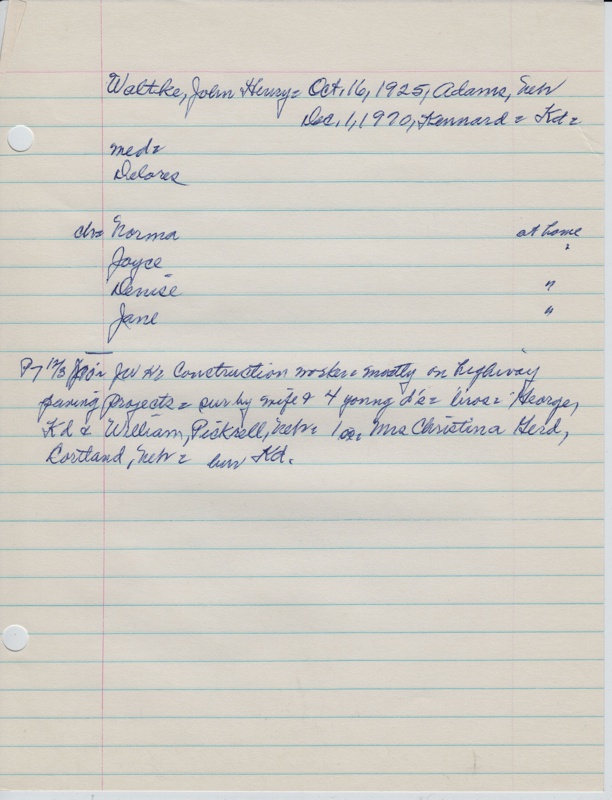 Waltke, John Henry = Oct. 16, 1925, Adams, Neb
Dec. 1, 1970, Kennard = Kd =
med=
Delores
ch= Norma at home
Joyce "
Denise "
Jane "
P7 12/3 Construction worker = mostly on highway
paving projects = sur by wife & 4 young d's = bros = George,
Kd & William, Pickrell, Neb = 1 s = Mrs Christina Gerd,
Cortland, Neb = bur Kd.